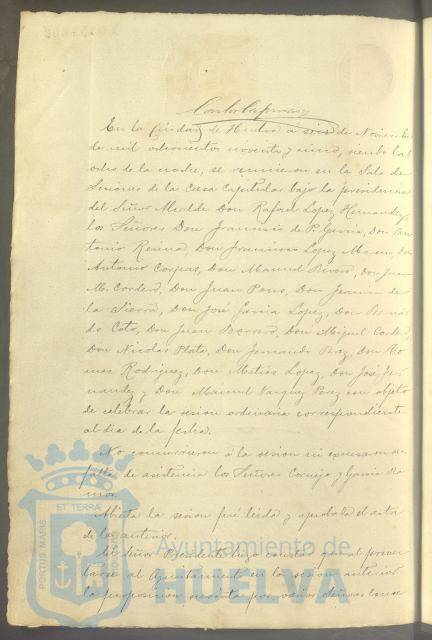 En la Ciudad de Huelva á seis de Noviembre
de mil ochocientos noventa y cinco, siendo las
ocho de la noche, se reunieron en la Sala de
Sesiones de la Casa Capitular bajo la presidencia
del Señor Alcalde Don Rafael Lopez Hernandez,
los Señores Don Francisco de P. Garcia, Don An
tonio Resina, Don Francisco Lopez Moreno, Don
Antonio Corpas, Don Manuel Rivero, Don Juan
M. Cordero, Don Juan Pons, Don Fermin de
la Sierra, Don José Garcia Lopez, Don
do Coto, Don Juan Borrero, Don Miguel Cordero,
Don Nicolas Plata, Don Fernando Paz, Don To
mas Rodriguez, Don Matias Lopez, Don José Fer
nandez y Don Manuel Vazquez Perez con objeto
de celebrar la sesion ordinaria correspondiente
al dia de la fecha.
No concurrieron á la sesion ni escusaron su
falta de asistencia los Señores Cornejo y Garcia Ra
mos.
Abierta la sesion fué leida y aprobada el acta
de la anterior.
El Señor Presidente hizo constar que al presen
tarse al Ayuntamiento en la sesion anterior
la proposicion suscrita por varios Señores Conce
PORTUS MARIS ET TERRAE CUSTODIA
Ayuntamiento de
HUELVA